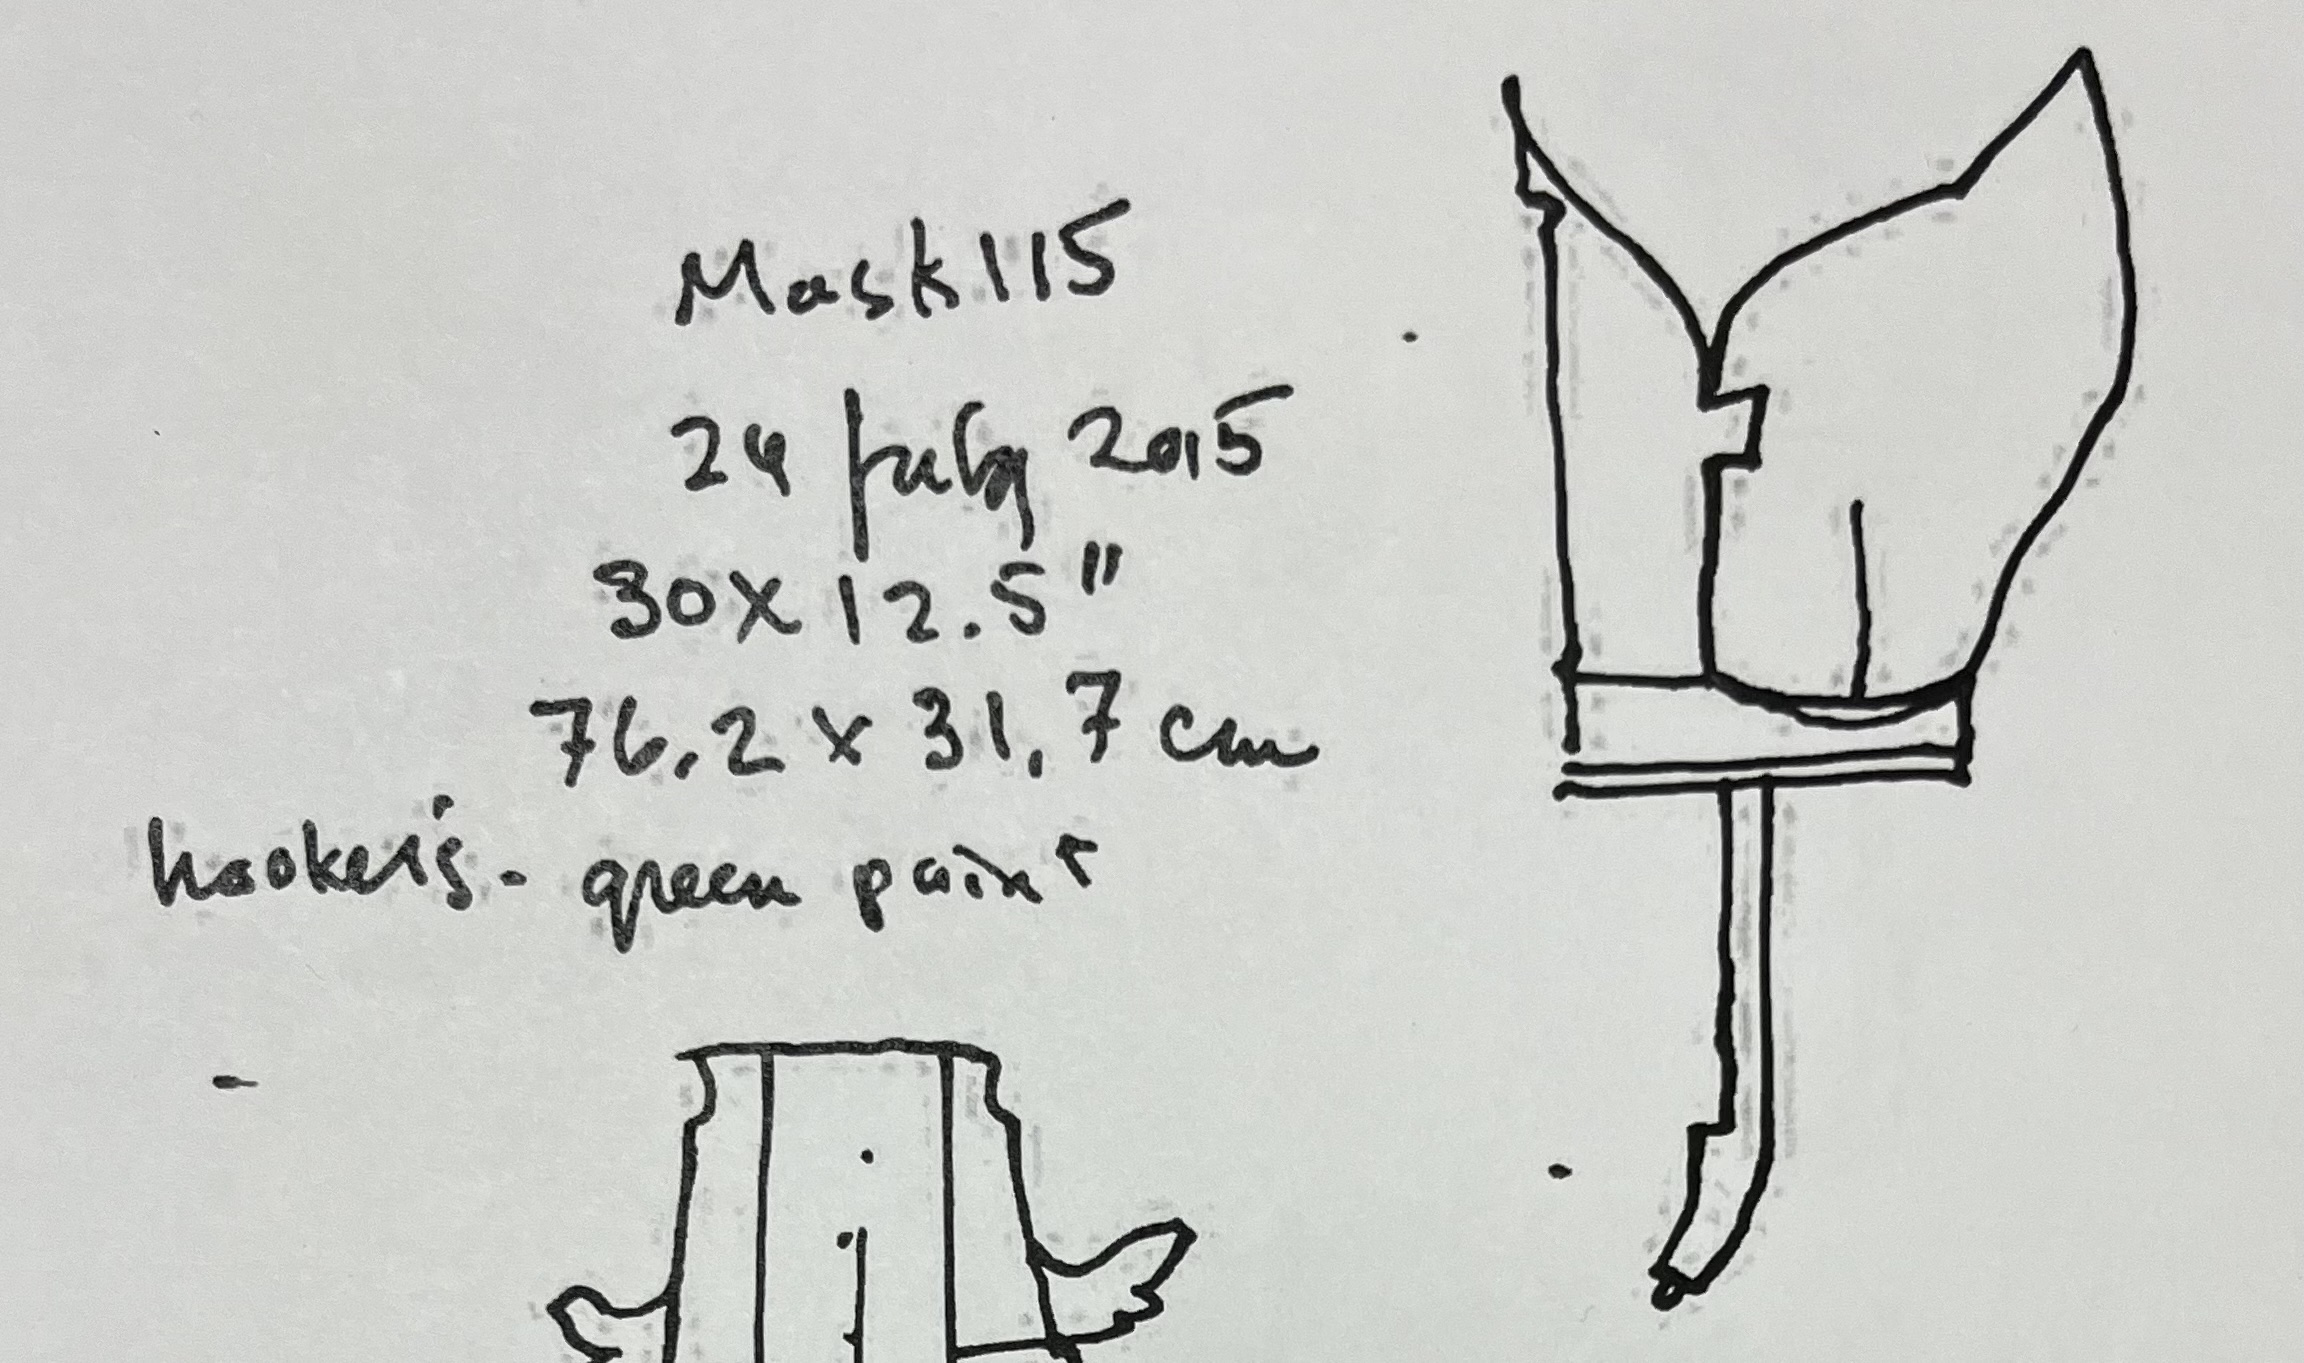 Mask 115
24 July 2015
30 x 12.5"
76.2 x 31.7 cm
hooker's - green paint